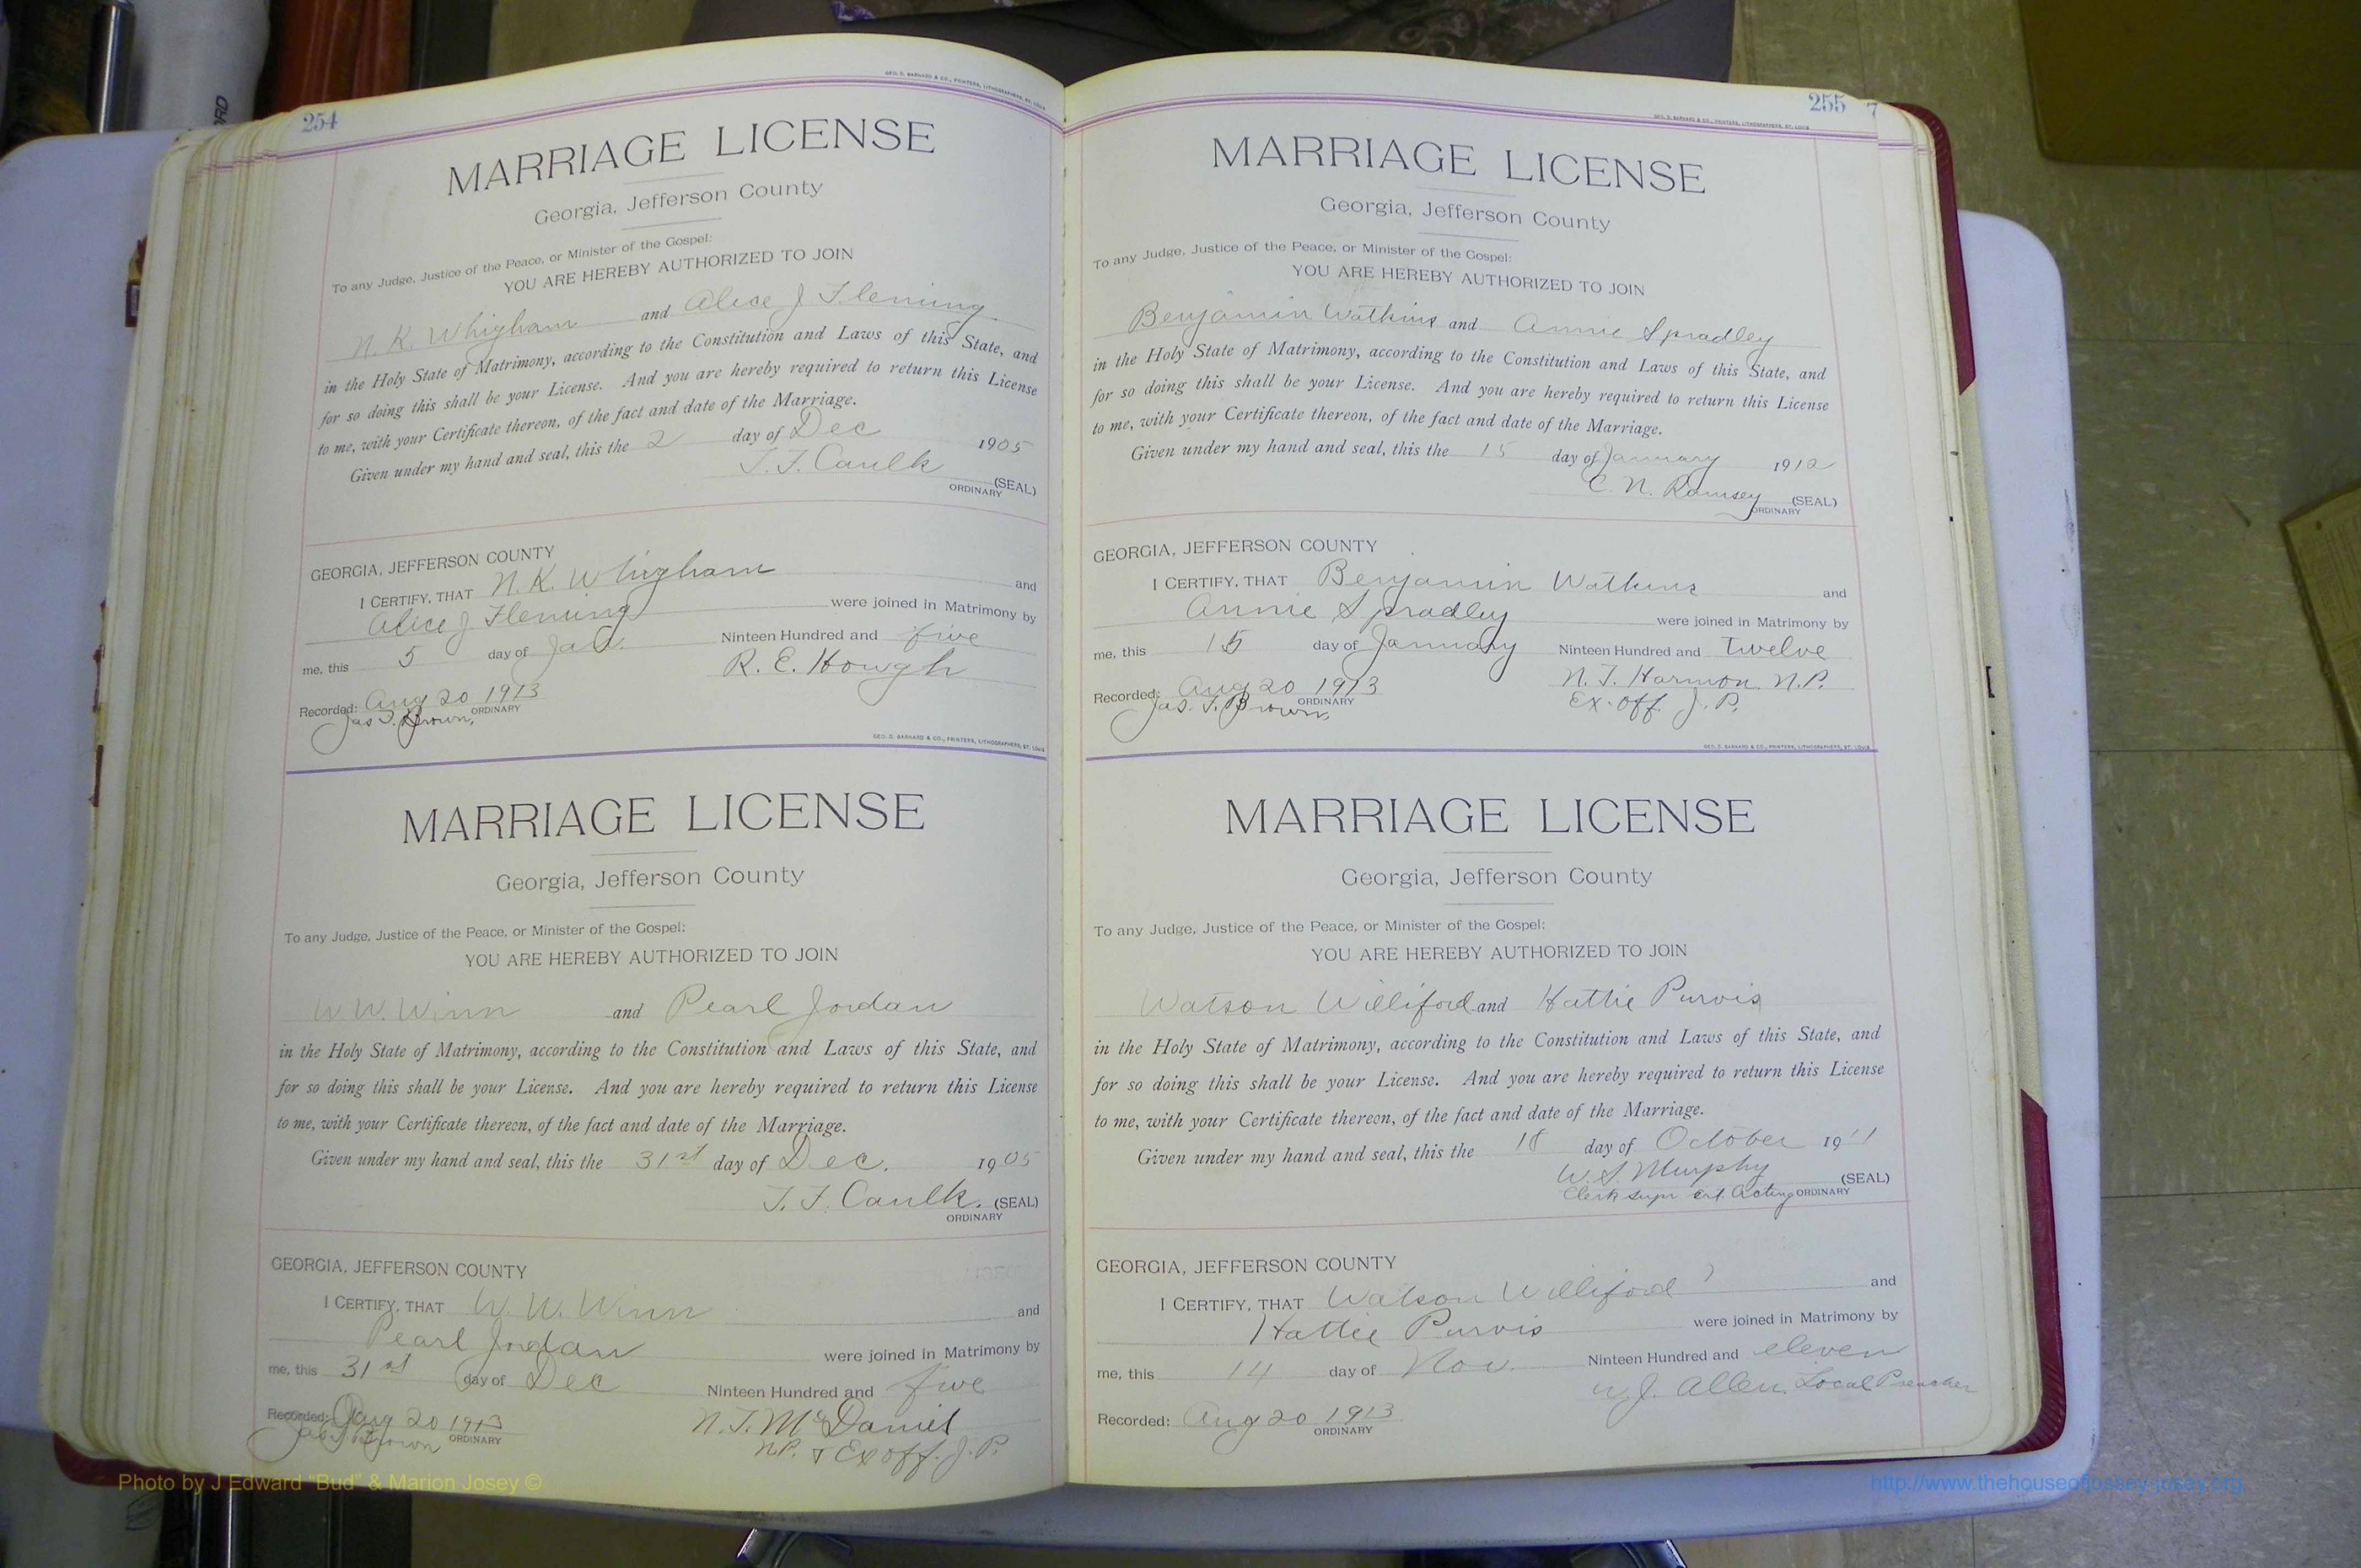 254
GEO. D. BARNARD & CO., PRINTERS, LITHOGRAPHERS, ST. LOUIS
MARRIAGE LICENSE
Georgia, Jefferson County
To any Judge, Justice of the Peace, or Minister of the Gospel:
YOU ARE HEREBY AUTHORIZED TO JOIN
N. K. Whigham and Alice J Fleming
in the Holy State of Matrimony, according to the Constitution and Laws of this State, and
for so doing this shall be your License. And you are hereby required to return this License
to me, with your Certificate thereon, of the fact and date of the Marriage.
Given under my hand and seal, this the 2 day of Dec 1905
T. F. Caulk (SEAL)
ORDINARY
GEORGIA, JEFFERSON COUNTY
I CERTIFY, THAT N. K. Whigham and
Alice J Fleming were joined in Matrimony by
me, this 5 day of Ninteen Hundred and five
R. E. Hough
Recorded: Aug 20 1913
Jas. F. Brown, ORDINARY
GEO. D. BARNARD & CO., PRINTERS, LITHOGRAPHERS, ST. LOUIS
MARRIAGE LICENSE
Georgia, Jefferson County
To any Judge, Justice of the Peace, or Minister of the Gospel:
YOU ARE HEREBY AUTHORIZED TO JOIN
W. W. Winn and Pearl Jordan
in the Holy State of Matrimony, according to the Constitution and Laws of this State, and
for so doing this shall be your License. And you are hereby required to return this License
to me, with your Certificate thereon, of the fact and date of the Marriage.
Given under my hand and seal, this the 31st day of Dec. 1905
T. F. Caulk. (SEAL)
ORDINARY
GEORGIA, JEFFERSON COUNTY
I CERTIFY, THAT W. W. Winn and
Pearl Jordan were joined in Matrimony by
me, this 31st day of Dec Ninteen Hundred and five
Recorded: Aug 20 1913 N. T. McDaniel
Jas. F. Brown ORDINARY N.P. & Ex off. J. P.
255 7
GEO. D. BARNARD & CO., PRINTERS, LITHOGRAPHERS, ST. LOUIS
MARRIAGE LICENSE
Georgia, Jefferson County
To any Judge, Justice of the Peace, or Minister of the Gospel:
YOU ARE HEREBY AUTHORIZED TO JOIN
Benjamin Watkins and Annie Spradley
in the Holy State of Matrimony, according to the Constitution and Laws of this State, and
for so doing this shall be your License. And you are hereby required to return this License
to me, with your Certificate thereon, of the fact and date of the Marriage.
Given under my hand and seal, this the 15 day of January 1912
C. N. Ramsey (SEAL)
ORDINARY
GEORGIA, JEFFERSON COUNTY
I CERTIFY, THAT Benjamin Watkins and
Annie Spradley were joined in Matrimony by
me, this 15 day of January Ninteen Hundred and Twelve
Recorded: Aug 20 1913 N. T. Harmon. N.P.
Jas. F. Brown, ORDINARY Ex. off. J. P.
GEO. D. BARNARD & CO., PRINTERS, LITHOGRAPHERS, ST. LOUIS
MARRIAGE LICENSE
Georgia, Jefferson County
To any Judge, Justice of the Peace, or Minister of the Gospel:
YOU ARE HEREBY AUTHORIZED TO JOIN
Watson Williford and Hattie Purvis
in the Holy State of Matrimony, according to the Constitution and Laws of this State, and
for so doing this shall be your License. And you are hereby required to return this License
to me, with your Certificate thereon, of the fact and date of the Marriage.
Given under my hand and seal, this the 18 day of October 1911
W. S. Murphy (SEAL)
Clerk Supr crt. Acting ORDINARY
GEORGIA, JEFFERSON COUNTY
I CERTIFY, THAT Watson Williford and
Hattie Purvis were joined in Matrimony by
me, this 14 day of Nov. Ninteen Hundred and eleven
W. J. Allen. Local Preacher
Recorded: Aug 20 1913
ORDINARY
Photo by J Edward "Bud" & Marion Josey ©
http://www.thehouseofjossey-josey.org